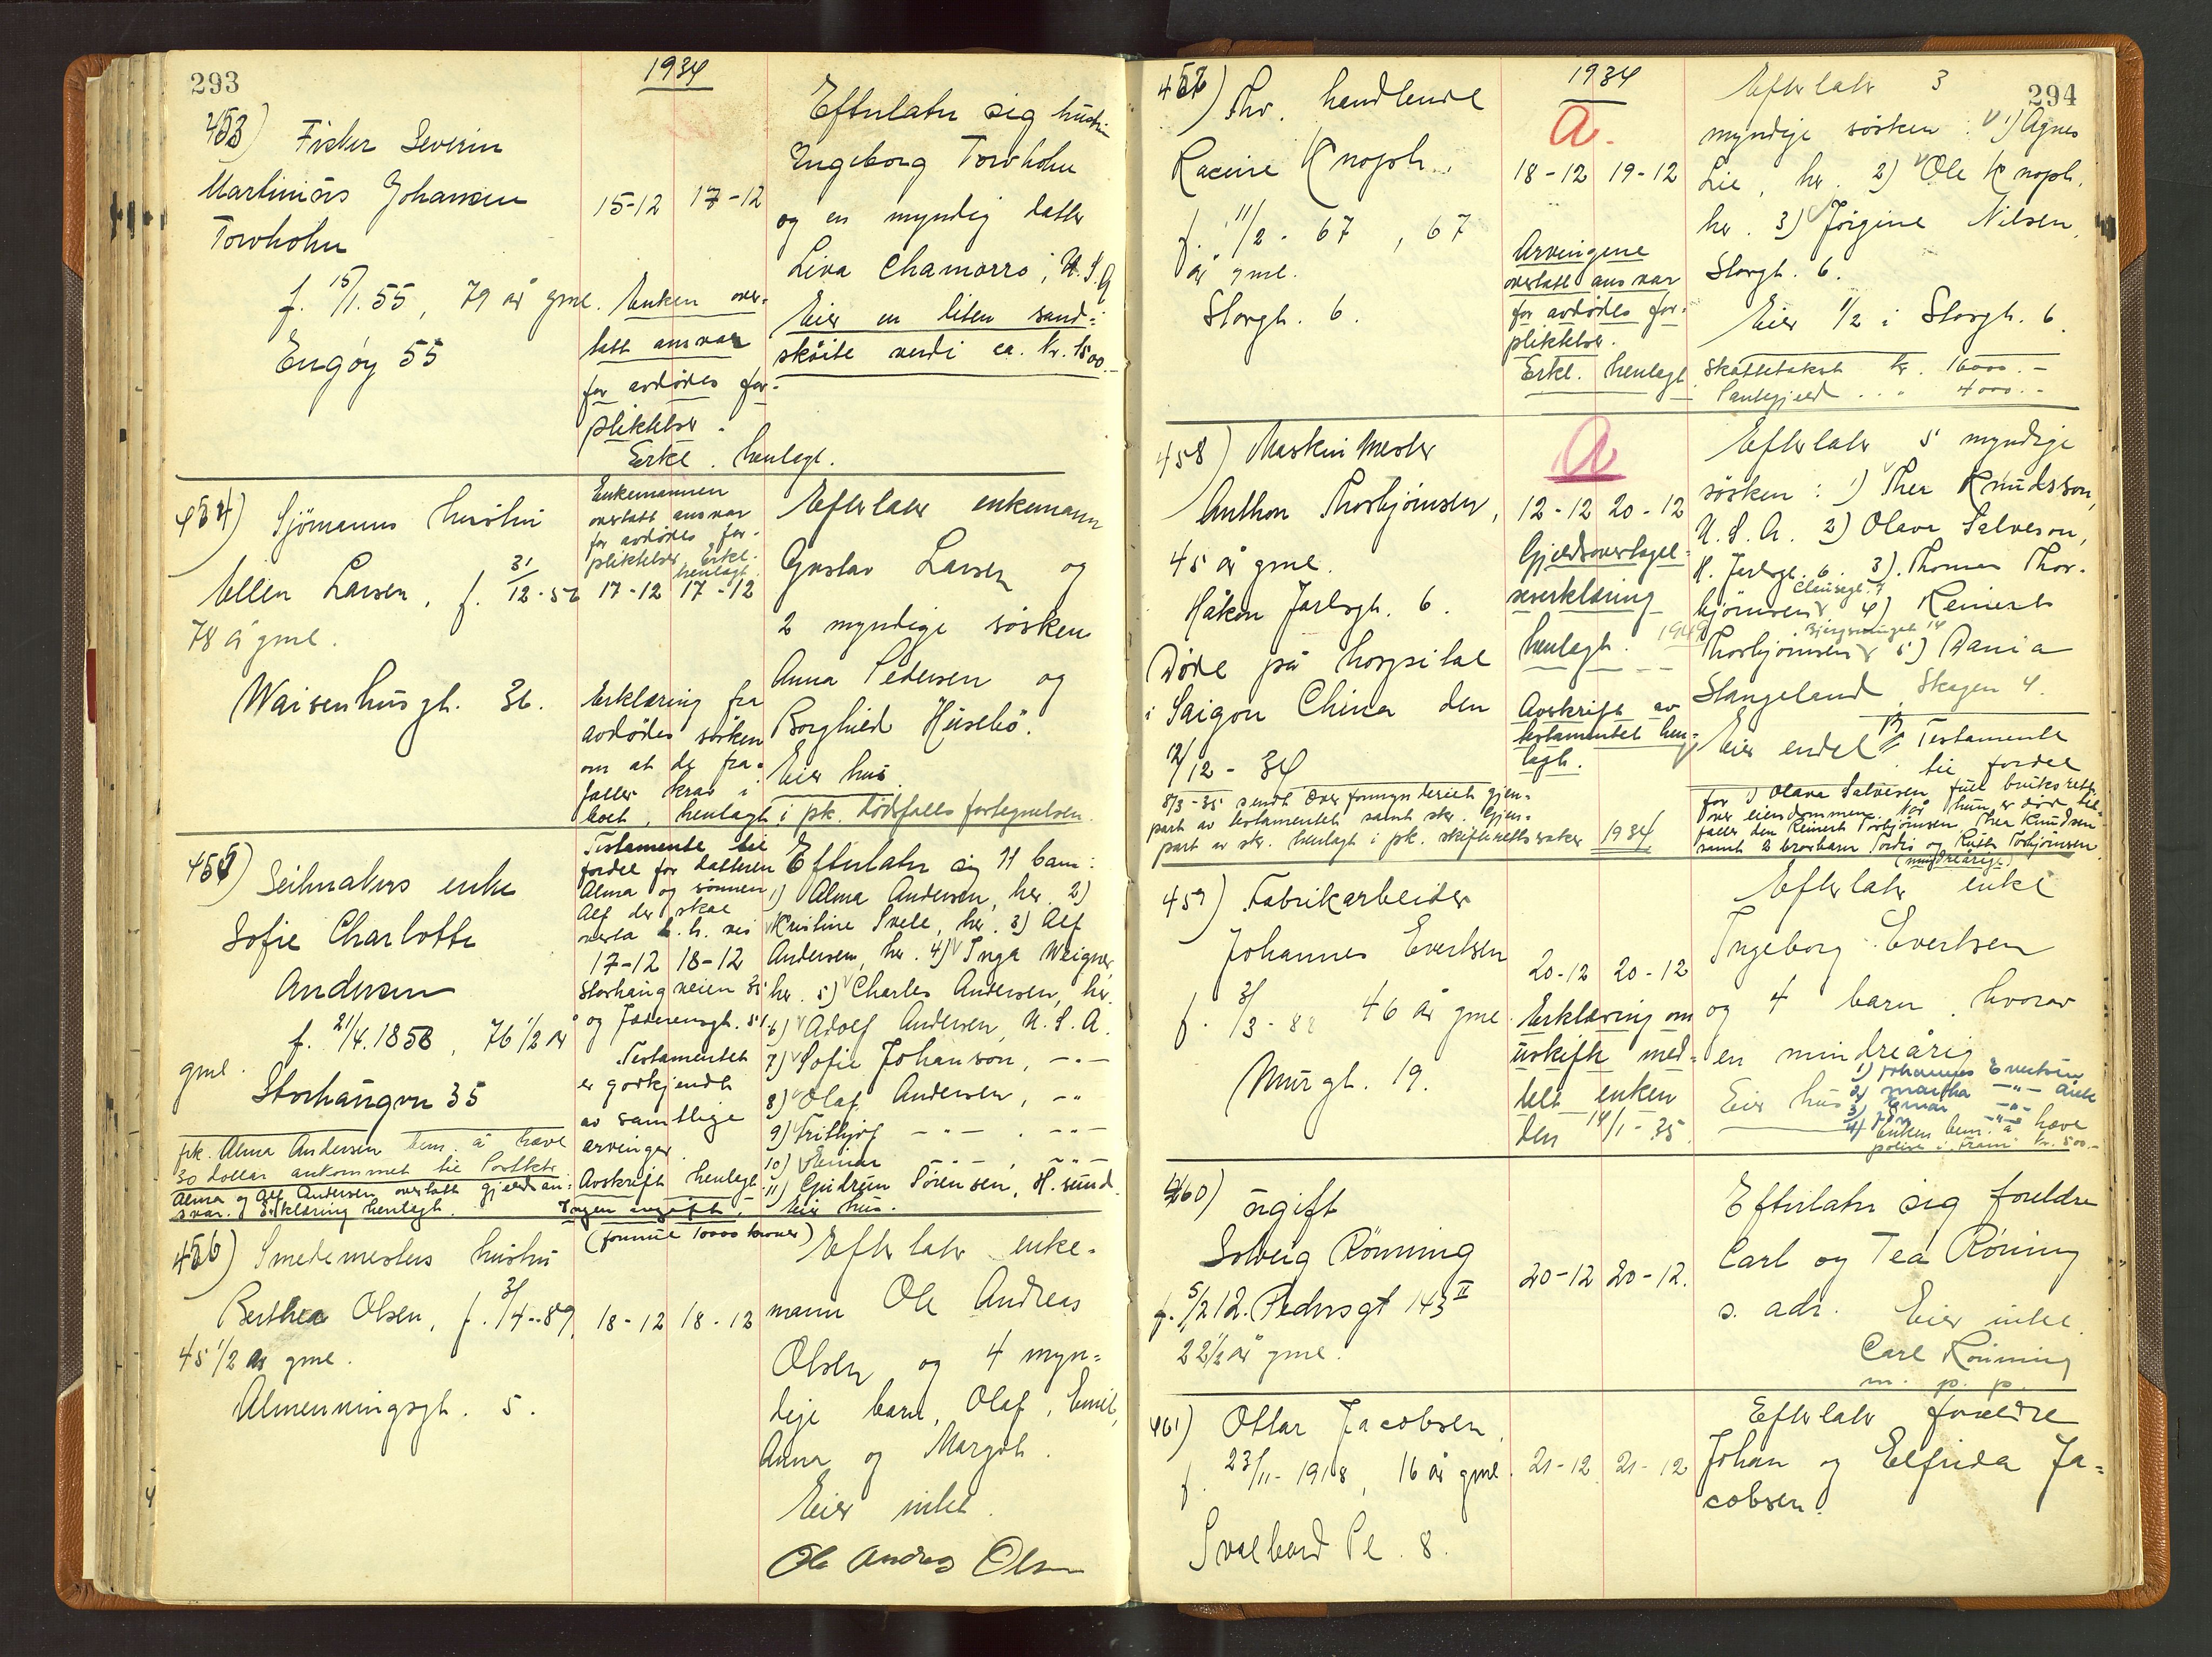 293
1934
453) Fisker Severin
Martinius Johansen
Torvholm
f. 15/1. 55, 79 år gml.
Engöy 55
15-12 17-12
Enken over-
tatt ansvar
for avdödes for-
pliktelser.
Erkl. henlagt.
Efterlater sig hustru
Engeborg Torvholm
og en myndig datter
Liva Chamorro, U.S.A
Eier en liten sand-
sköite verdi ca. kr. 1500.-
454) Sjömanns hustru
Ellen Larsen, f. 31/12-56
78 år gml.
Waisenhusgt. 36.
Enkemannen
overtatt ansvar
for avdödes for-
pliktelser, Erkl.
henlagt.
17-12 17-12
Erklæring fra
avdödes søsken
om at de fra-
faller krav i
boet, henlagt i pk. Dødsfalls fortegnelsen.
Efterlater enkemann
Gustav Larsen og
2 myndige søsken
Anna Pedersen og
Borghild Husebö.
Eier hus.
455) Seilmakers enke
Sofie Charlotte
Andersen
f. 21/4. 1858, 76 1/2 år
gml.
Storhaugvn 35
pk. Alma Andersen bem. å hæve
30 dollar ankommet til Postktr.
Alma og Alf Andersen overtatt gjeldsan-
svar. Erklæring henlagt.
Testamente til
fordel for datteren
Alma og sønnen
Alf der skal
overta h.h. vis
17-12 18-12
Storhaugveien 35
og Jæderensgt. 51
Testamentet
er godkjendt
av samtlige
arvinger.
Avskrift henlagt.
Ingen avgift.
(formue 10000 kroner)
Efterlater sig 11 barn:
1) Alma Andersen, her. 2)
Kristine Svele, her. 3) Alf
Andersen, her. 4) Inga Weigner,
her. 5) Charles Andersen, her.
6) Adolf Andersen, U.S.A.
7) Sofie Johanson, -.-
8) Olaf Andersen, -"
9) Fritjof -"- . -"-
10) Einar -"- , -"-
11) Gudrun Sörensen, H.sund.
Eier hus.
456) Smedemesters hustru
Berthea Olsen, f. 3/4-89,
45 1/2 år gml.
Almenningsgt. 5.
18-12 18-12
Efterlater enke-
mann Ole Andreas
Olsen og 4 myn-
dige barn, Olaf, Emil,
Anna og Margot.
Eier intet.
Ole Andreas Olsen
294
1934
457) Fhv. handlende
Racine Knoph.
f. 11/2-67, 67
år gml.
Storgt. 6.
A.
18-12 19-12
Arvingene
overtatt ansvar
for avdödes for-
pliktelser.
Erkl. henlagt.
Efterlater 3
myndige søsken: 1) Agnes
Lie, her. 2) Ole Knoph,
her. 3) Jörgine Nilsen,
Storgt. 6.
Eier 1/2 i Storgt. 6.
Skattetakst kr. 16000.-
Pantegjeld . . " 4000.-
458) Maskinmester
Anthon Thorbjörnsen,
45 år gml.
Håkon Jarlsgt. 6.
Döde på hospital
i Saigon China den
12/12-34
8/3-35 sendt Overformynderiet gjen-
part av testamentet samt skr. Gjen-
part av skr. henlagt i pk. skifterettssaker 1934.
A
12-12 20-12
Gjeldsovertagel-
seserklæring
henlagt. 1949
Avskrift av
testamentet hen-
lagt.
Efterlater 5 myndige
søsken: 1) Thea Knudsson,
U.S.A. 2) Olava Salveson,
H. Jarlsgt. 6. 3). Thomas Thor-
Clausegt. 7
björnsen 4) Reinert
Thorbjörnsen 5) Dania
Stangeland Skagen 4.
Eier endel. Testamente
til fordel
for 1) Olava Salvesen full bruksrett
over eiendommen. Når hun er død til-
faller den Reinert Torbjörnsen, Thea Knudsen
samt 2 brorbarn Tordis og Ruth Torbjörnsen
(mindreårige)
459) Fabrikarbeider
Johannes Evertsen
f. 3/3-88 46 år gml.
Murgt. 19.
20-12 20-12
Erklæring om
uskifte med-
delt enken
den 14/1-35.
Efterlater enke
Ingeborg Evertsen
og 4 barn, hvorav
en mindreårig
1) Johannes Evertsen
2) Martha -"-
3) Einar -"-
4)
Eier hus
Enken bem. å hæve
polise i Fram kr. 500.-
460) Ugift
Solveig Rönning
f. 5/2 12. Pedersgt 143 II
22 1/2 år gml.
20-12 20-12.
Efterlater sig foreldre
Carl og Tea Röning
s. adr. Eier intet.
Carl Rönning
m. p. p.
461) Ottar Jacobsen,
f. 23/11-1918, 16 år gml.
Svalbard Pl. 8.
21-12 21-12
Efterlater foreldre
Johan og Elfrida Ja-
cobsen.